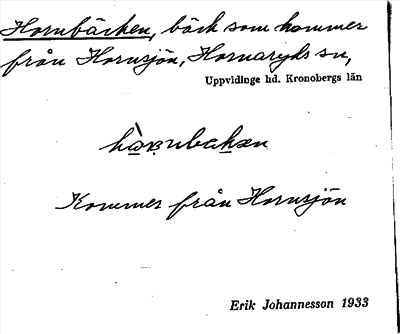 Hornbäcken, bäck som kommer
från Hornsjön, Hornaryds sn,
Uppvidinge hd. Kronobergs län
Kommer från Hornsjön
Erik Johannesson 1933